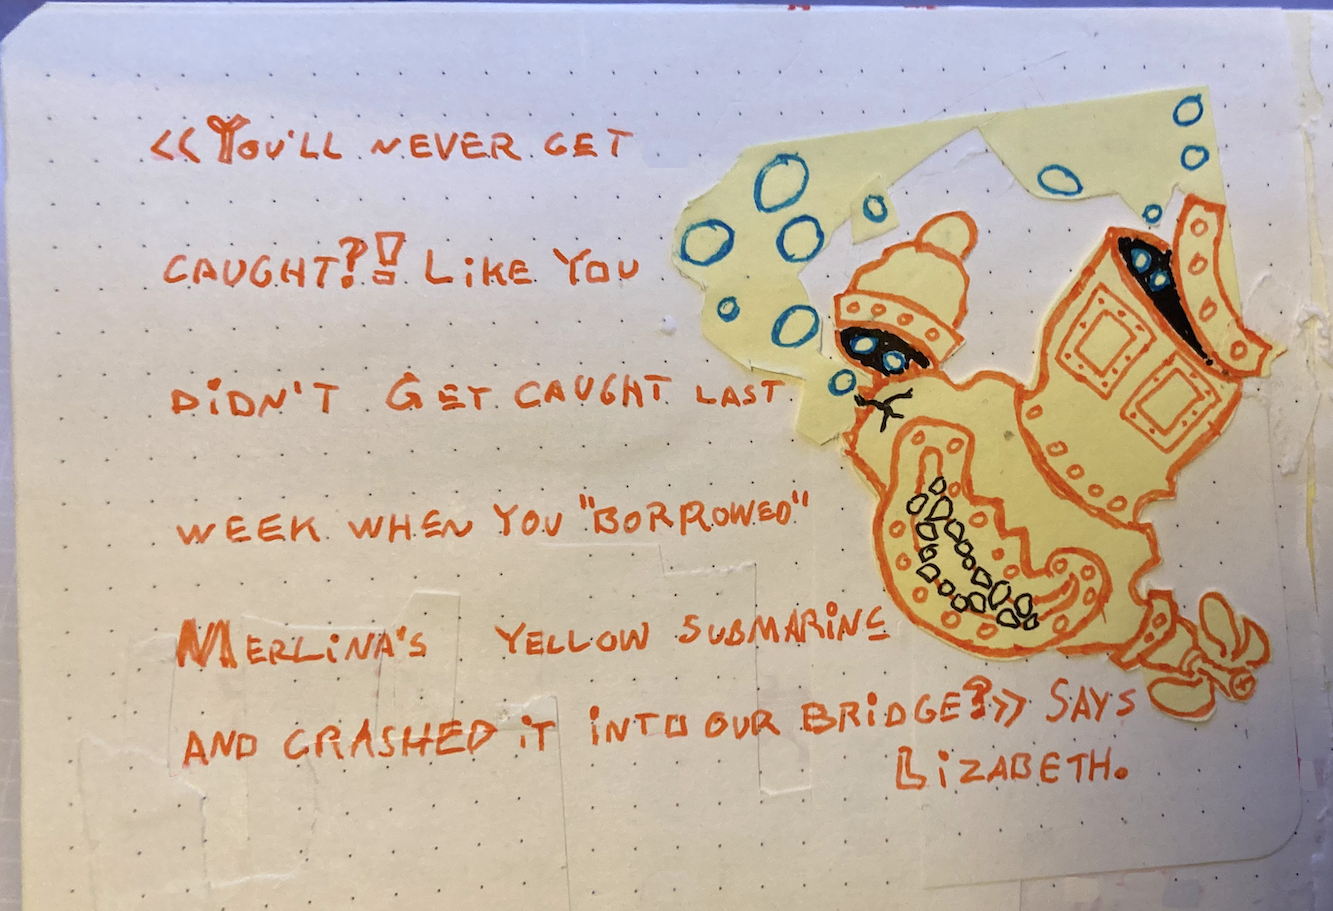 <<YOU'LL NEVER GET
CAUGHT?! LiKE YOU
DiDN'T GET CAUGHT LAST
WEEK WHEN YOU "BORROWED"
MERLiNA'S YELLOW SUBMARiNE
AND CRASHED iT iNTO OUR BRiDGE?>> SAYS
LiZABETH.